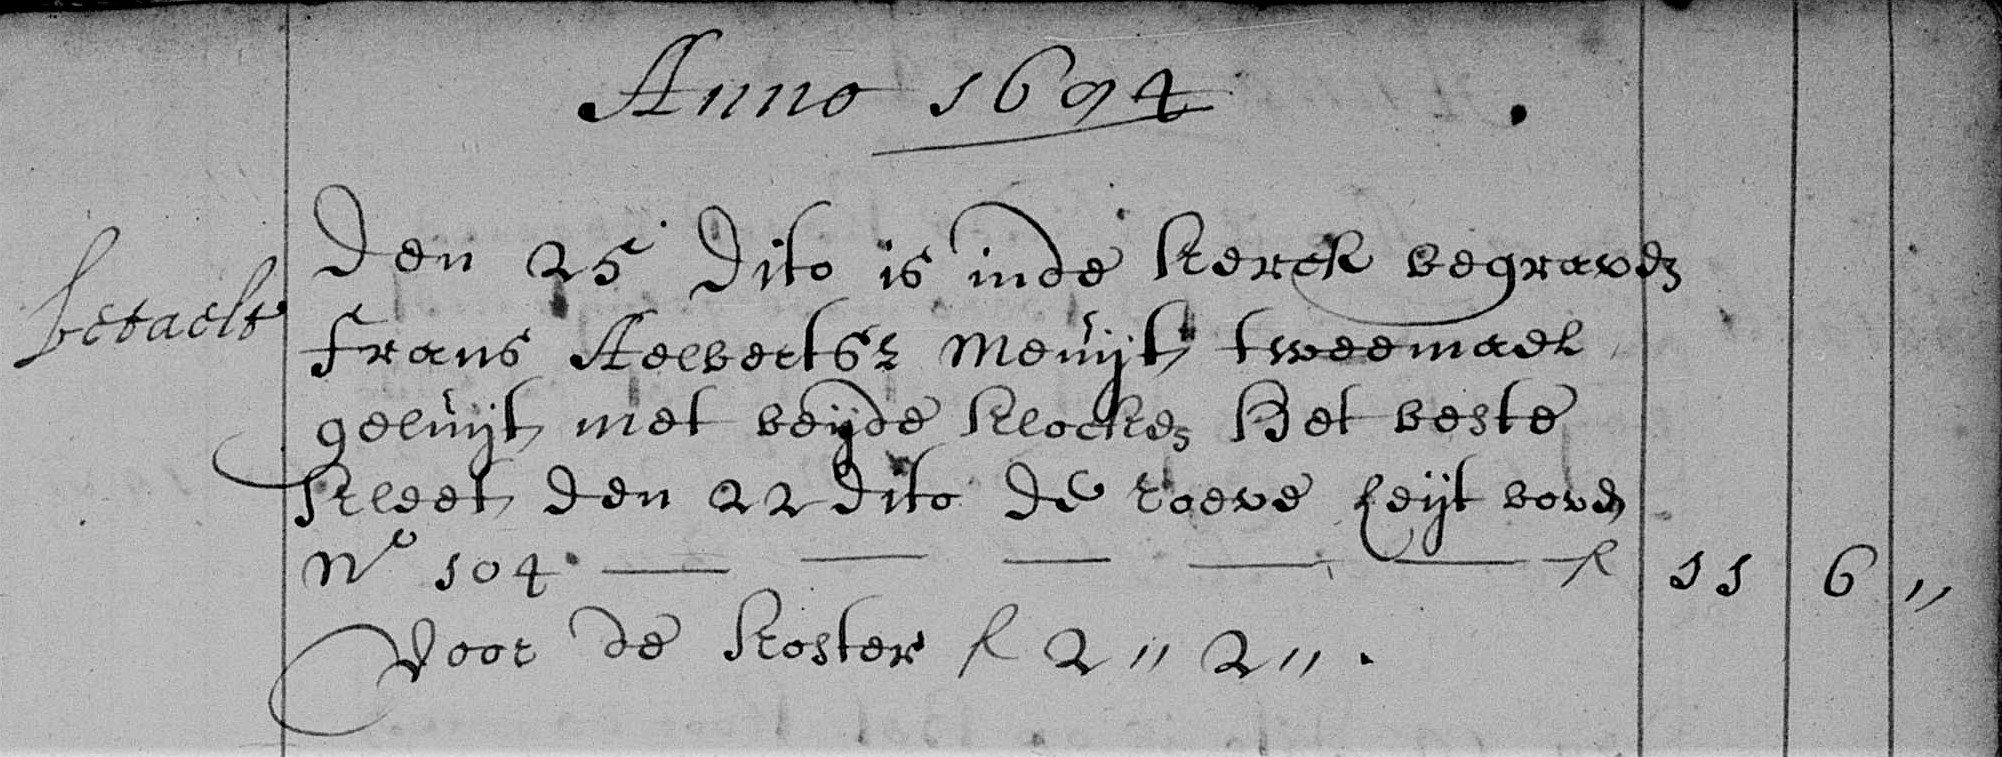 Anno 1694
Den 25 dito is inde kerck begraven
betaelt
frans Aelbertsz Meuijt tweemael
geluijt met beijde klocken Het beste
kleet den 22 dito de roeve leijt boven
No 104 — — — — — f 11 6 "
Voor de koster f 2 " 2 " .